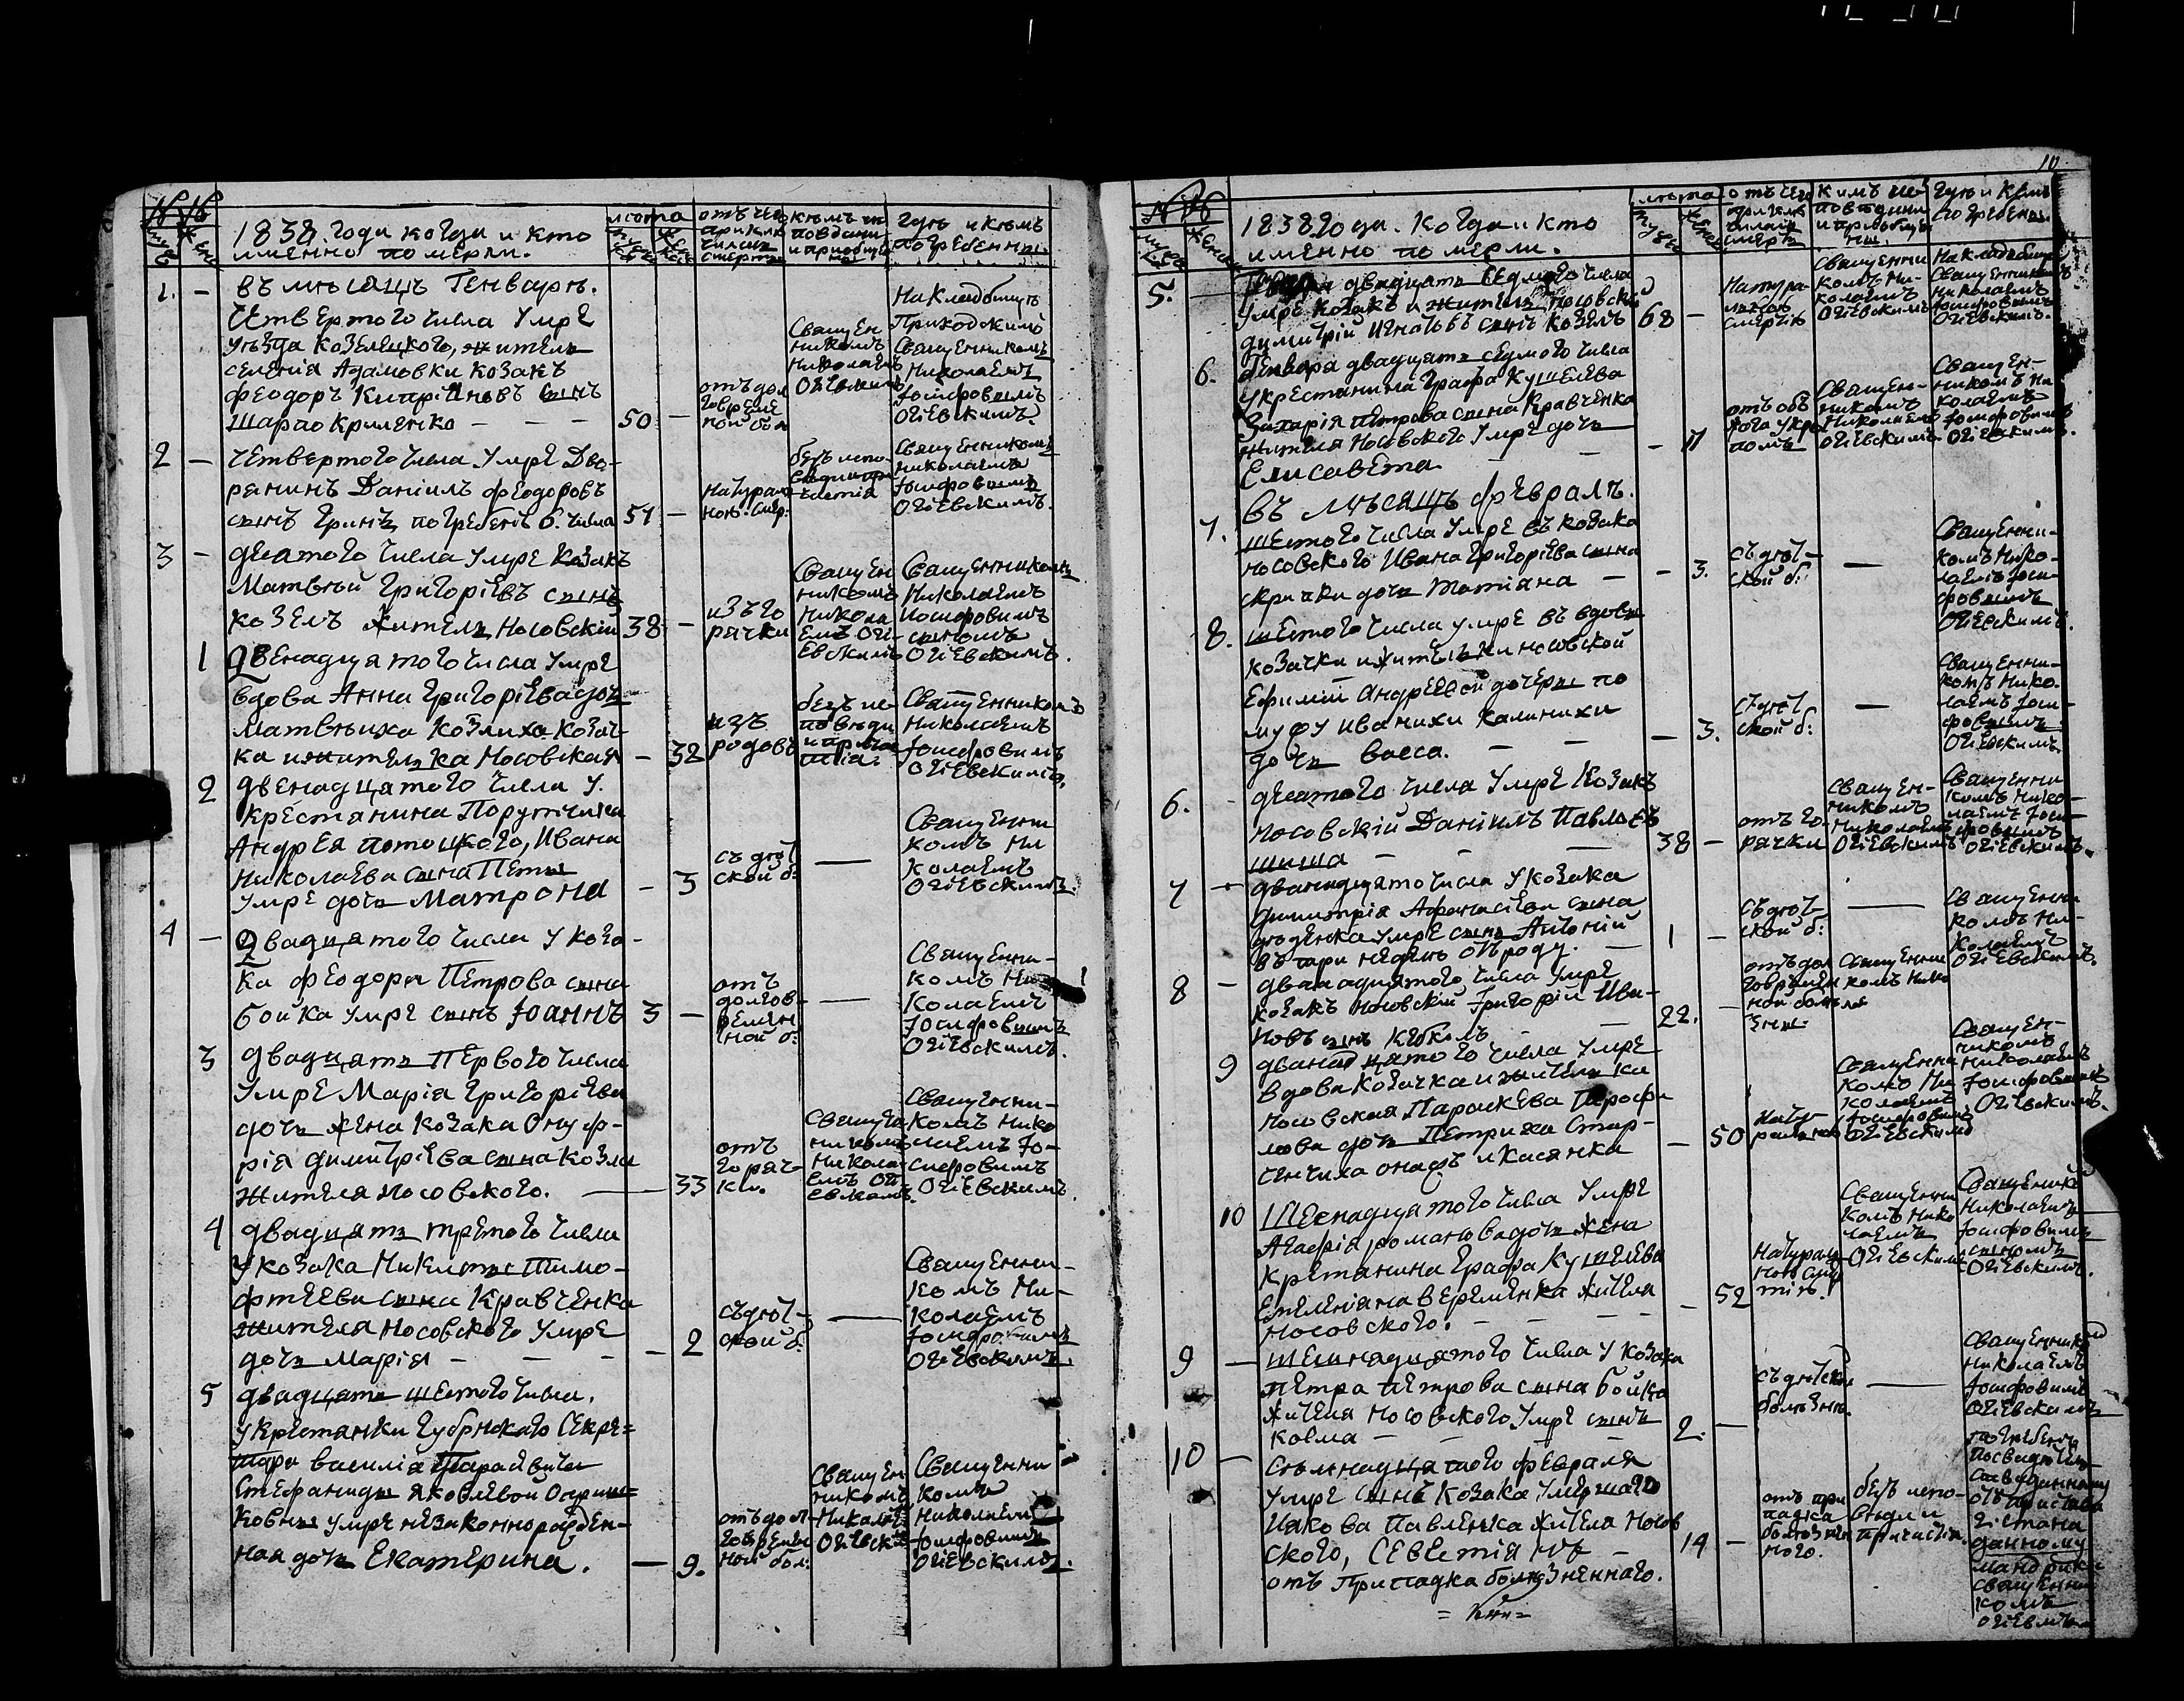 1838 года когда и кто
именно померли.
лета
отъ чего
приклю
чилась
смерть
кемъ ис
поведани
и приобще
ны
где и кемъ
погребенны.
1. —
въ месяце Генваре.
Четвертого числа умре
уезда Козелецкого, житель
селенія Адамовки козакъ
Феодоръ Кипріановъ сынъ
Шарао Криленко — — —
50 —
отъ дол
говреме
ной бол
Священ
никомъ
Николаемъ
Огіевскимъ
На кладбище
Приходскимъ
Священникомъ
Николаемъ
Іосифовымъ
Огіевскимъ.
2 —
четвертого числа умре Дво-
ранинъ Даніилъ Феодоровъ
сынъ Гринь погребенъ 6. числа
51 —
Натурал
ною смер:
безъ испо-
Священникомъ
Николаемъ
Іосифовымъ
Огіевскимъ.
3 —
десятого числа умре козакъ
Матвей Григоріевъ сынъ
Козелъ житель Носовскій
38 —
изъ го
рячки
Священ
никомъ
Никола
емъ Огі-
евскимъ
Священникомъ
Николаемъ
Иосифовымъ
сыномъ
Огіевскимъ.
1
Двенадцятого числа умре
вдова Анна Григоріева дочь
Матвеиха Козлиха козач-
ка и жителька Носовская
— 32
изъ
родовъ
безъ ис-
поведи
и прича
стія.
Священникомъ
Николаемъ
Іосифовимъ
Огіевскимъ.
2
двенадцятого числа у
крестянина Порутчика
Андрея Потоцкого, Ивана
Николаева сына Петы
умре дочь Матрона
— 3
съ дет
ской б:
—
Священни
комъ Ни
колаемъ
Огіевскимъ.
4 —
Двадцятого числа у коза-
ка Феодора Петрова сына
Бойка умре сынъ Іоаннъ
3 —
отъ
долгов-
ремен
ной б:
—
Священни-
комъ Ни-
колаемъ
Іосифовымъ
Огіевскимъ.
3
двадцять первого числа
умре Марія Григоріева
дочь жена козака Онуф-
рія Димитріева сына Козла
жителя Носовского.
— 33
отъ
горяч-
ки.
Священ
никомъ
Никола-
емъ Огі
евскимъ.
Священни-
комъ Нико
лаемъ Іо-
сифовимъ
Огіевскимъ.
4
двадцять третого числа
у козака Никиты Тимо-
фтеева сына Кравченка
жителя Носовского умре
дочь Марія — — —
— 2
съ дет-
ской б:
—
Священни-
комъ Ни-
колаемъ
Іосифовимъ
Огіевскимъ.
5
двадцять шестого числа.
у крестянки Губрнского Секре=
тара Василія Тарасевича
Стефаниды Яковлевой
умре незаконнорожден-
ная дочь Екатерина.
— 9.
отъ дол-
говремен
ной бол:
Священ
никомъ
Николаемъ
Огіевски
Священни
комъ
Николаемъ
Іосифовимъ
Огіевскимъ.
10
1838 года. Когда и кто
именно померли.
лета
отъ чего
приклю
чилась
смерть
кимъ ис
поведани
и приобще
ны.
где и кемъ
погребены.
5. —
двадцять седмого числа
умре козакъ и житель Носовскій
Димитрій Игнатьевъ сынъ Козелъ
68 —
Натура
льною
смертію
Священни
комъ Ни-
колаемъ
Огіевскимъ
На кладбище
Священникомъ
Николаемъ
Іосифовымъ
Огіевскимъ.
6.
Генвара двадцять седмого числа
у крестянина Графа Кушелева
Захарія Петрова сына Кравченка
жителя Носовского умре дочь
Елисавета
— 11
Священ-
никомъ
Николаемъ
Огіевскимъ
Священ-
никомъ Ни
колаемъ
Іосифовимъ
Огіевскимъ.
въ месяце Феврале.
7.
шестого числа умре въ козака
Носовского Ивана Григоріева сына
Скрипки дочь Татіана —
— 3.
съ дет-
ской б:
—
Священни-
комъ Нико-
лаемъ Іоси-
фовимъ
Огіевскимъ.
8.
шестого числа умре въ вдовы
козачки и жительки Носовской
Ефиміи Андреевой дочери по
мужу Иванихи Калинихи
дочь Васса. — —
— 3.
съ дет
ской б:
—
Священни-
комъ Нико-
лаемъ Іоси-
фовимъ
Огіевскимъ.
6. -
десятого числа умре козакъ
Носовскій Даніилъ Павловъ
Шиша — —
38 —
отъ го-
рячки
Священ-
никомъ
Николаемъ
Огіевскимъ
Священни
комъ Нико-
лаемъ Іоси-
фовимъ
Огіевскимъ.
7 -
дванадцято числа у козака
Димитрія Афанасіева сына
умре сынъ Антоній
въ тари недели отроду. —
1 —
съ дет-
ской б:
—
Священни
комъ Ни-
колаемъ
Огіевскимъ.
8 -
дванадцятого числа умре
козакъ Носовскій Григорій Ива-
новъ сынъ
22. —
отъ дол
говремен
ной боле
зни.
Священни
комъ Нико
лаемъ
9
дванадцятого числа умре
вдова козачка и жителька
Носовская Параскева Трофи
мова дочь Петриха
— 50
Натур
Священни
комъ Ни
колаемъ
Іосифовимъ
Огіевскимъ
Священ-
никомъ
Николаемъ
Іосифовимъ
Огіевскимъ.
10
Шеснадцятого числа умре
Агафія Романова дочь жена
крестянина Графа Кушелева
Емеліяна Веременка жителя
Носовского. — — —
— 52
Натурал
ною смер
тію.
Священни
комъ Нико
лаемъ
Огіевским
Священнико
Николаемъ
Іосифовимъ
сыномъ
Огіевскимъ.
9 —
шеснадцятого числа у козака
Петра Петрова сына Бойка
жителя Носовского умре сынъ
Козма — — —
2. —
съ детской
болезни.
—
Священнико
Николаемъ
Іосифовимъ
Огіевскимъ
10 —
Семнадцятого Февраля
умре сынъ козака умершаго
Иакова Павленка жителя Носов
ского, —
отъ припадка болезненнаго.
14 —
отъ при
падка
болезнен
ного.
безъ испо-
веди и
причастія.
погребенъ
по свидетель
данному
священни
комъ